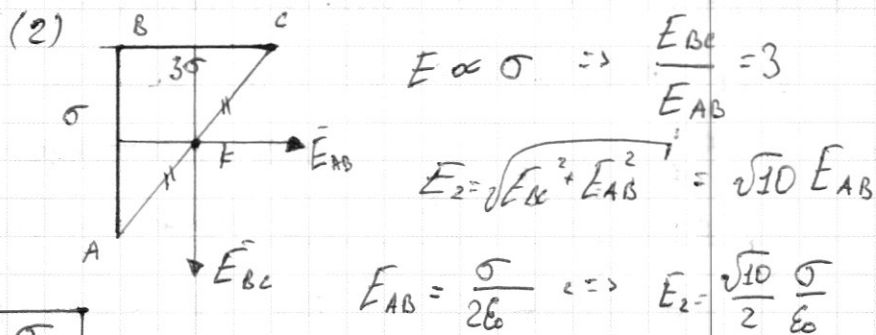 (2)
B
C
3σ
σ
E
Ē_AB
A
Ē_BC
E ∝ σ => E_BC / E_AB = 3
E_2 = √(E_BC² + E_AB²) = √10 E_AB
E_AB = σ / 2ε₀ => E_2 = √10 / 2 σ / ε₀
σ